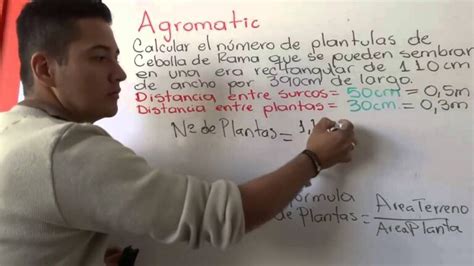 Agromatic
Calcular el número de plantulas de
Cebolla de Rama que se pueden sembrar
en una era rectangular de 110cm
de ancho por 390cm de largo.
Distancia entre surcos = 50cm = 0,5m
Distancia entre plantas = 30cm = 0,3m
Nº de Plantas = 1,1
formula
de Plantas = Area Terreno
Area Planta